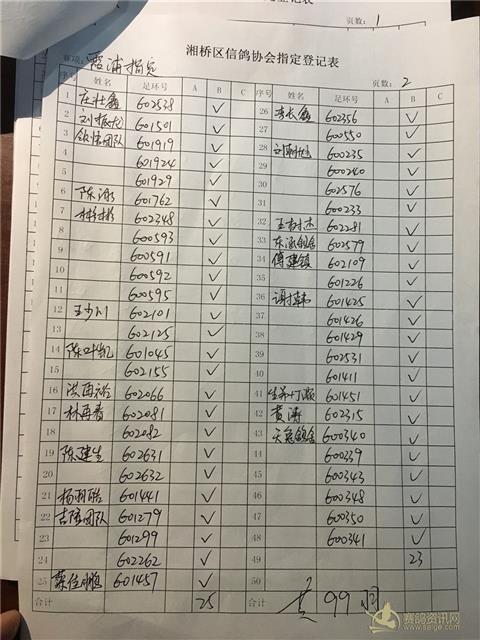 页数：1
湘桥区信鸽协会指定登记表
赛项：霞浦指定 页数：2
序号 姓名 足环号 A B C 序号 姓名 足环号 A B C
1 602538 ✓ 26 李长鑫 602356 ✓
2 刘振龙 601501 ✓ 27 600550 ✓
3 团队 601919 ✓ 28 600235 ✓
4 601924 ✓ 29 600240 ✓
5 601929 ✓ 30 602576 ✓
6 陈 601762 ✓ 31 600233 ✓
7 602348 ✓ 32 602281 ✓
8 600593 ✓ 33 602579 ✓
9 600591 ✓ 34 傅建 602109 ✓
10 600592 ✓ 35 601226 ✓
11 600595 ✓ 36 601425 ✓
12 王少川 602101 ✓ 37 601426 ✓
13 602125 ✓ 38 601429 ✓
14 陈叶凯 601045 ✓ 39 602531 ✓
15 602155 ✓ 40 601411 ✓
16 602066 ✓ 41 601451 ✓
17 林再春 602081 ✓ 42 黄涛 602315 ✓
18 602082 ✓ 43 600340 ✓
19 陈建生 602631 ✓ 44 600339 ✓
20 602632 ✓ 45 600343 ✓
21 601441 ✓ 46 600348 ✓
22 吉隆团队 601279 ✓ 47 600350 ✓
23 601299 ✓ 48 600341 ✓
24 602262 ✓ 49 23
25 601457 ✓ 50
合计 25 合计 共 99 羽
赛鸽资讯网
www.saige.com